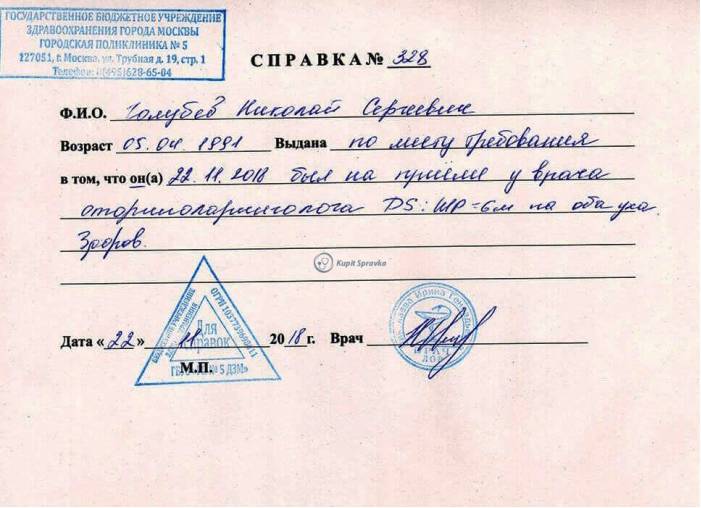 ГОСУДАРСТВЕННОЕ БЮДЖЕТНОЕ УЧРЕЖДЕНИЕ
ЗДРАВООХРАНЕНИЯ ГОРОДА МОСКВЫ
ГОРОДСКАЯ ПОЛИКЛИНИКА № 5
127051, г. Москва, ул. Трубная д. 19, стр. 1
Телефон: 8(495)628-65-04
СПРАВКА № 328
Ф.И.О. Голубев Николай Сергеевич
Возраст 05.04.1991 Выдана по месту требования
в том, что он(а) 22.11.2018 был на приёме у врача
оториноларинголога DS: ШР=6м на оба уха.
Здоров.
Kupit Spravka
БЮДЖЕТНОЕ УЧРЕЖДЕНИЕ
ОГРН
Для
справок
№ 5 ДЗМ»
Дата «22» 11 2018 г. Врач
Ирина
ВРАЧ
М.П.